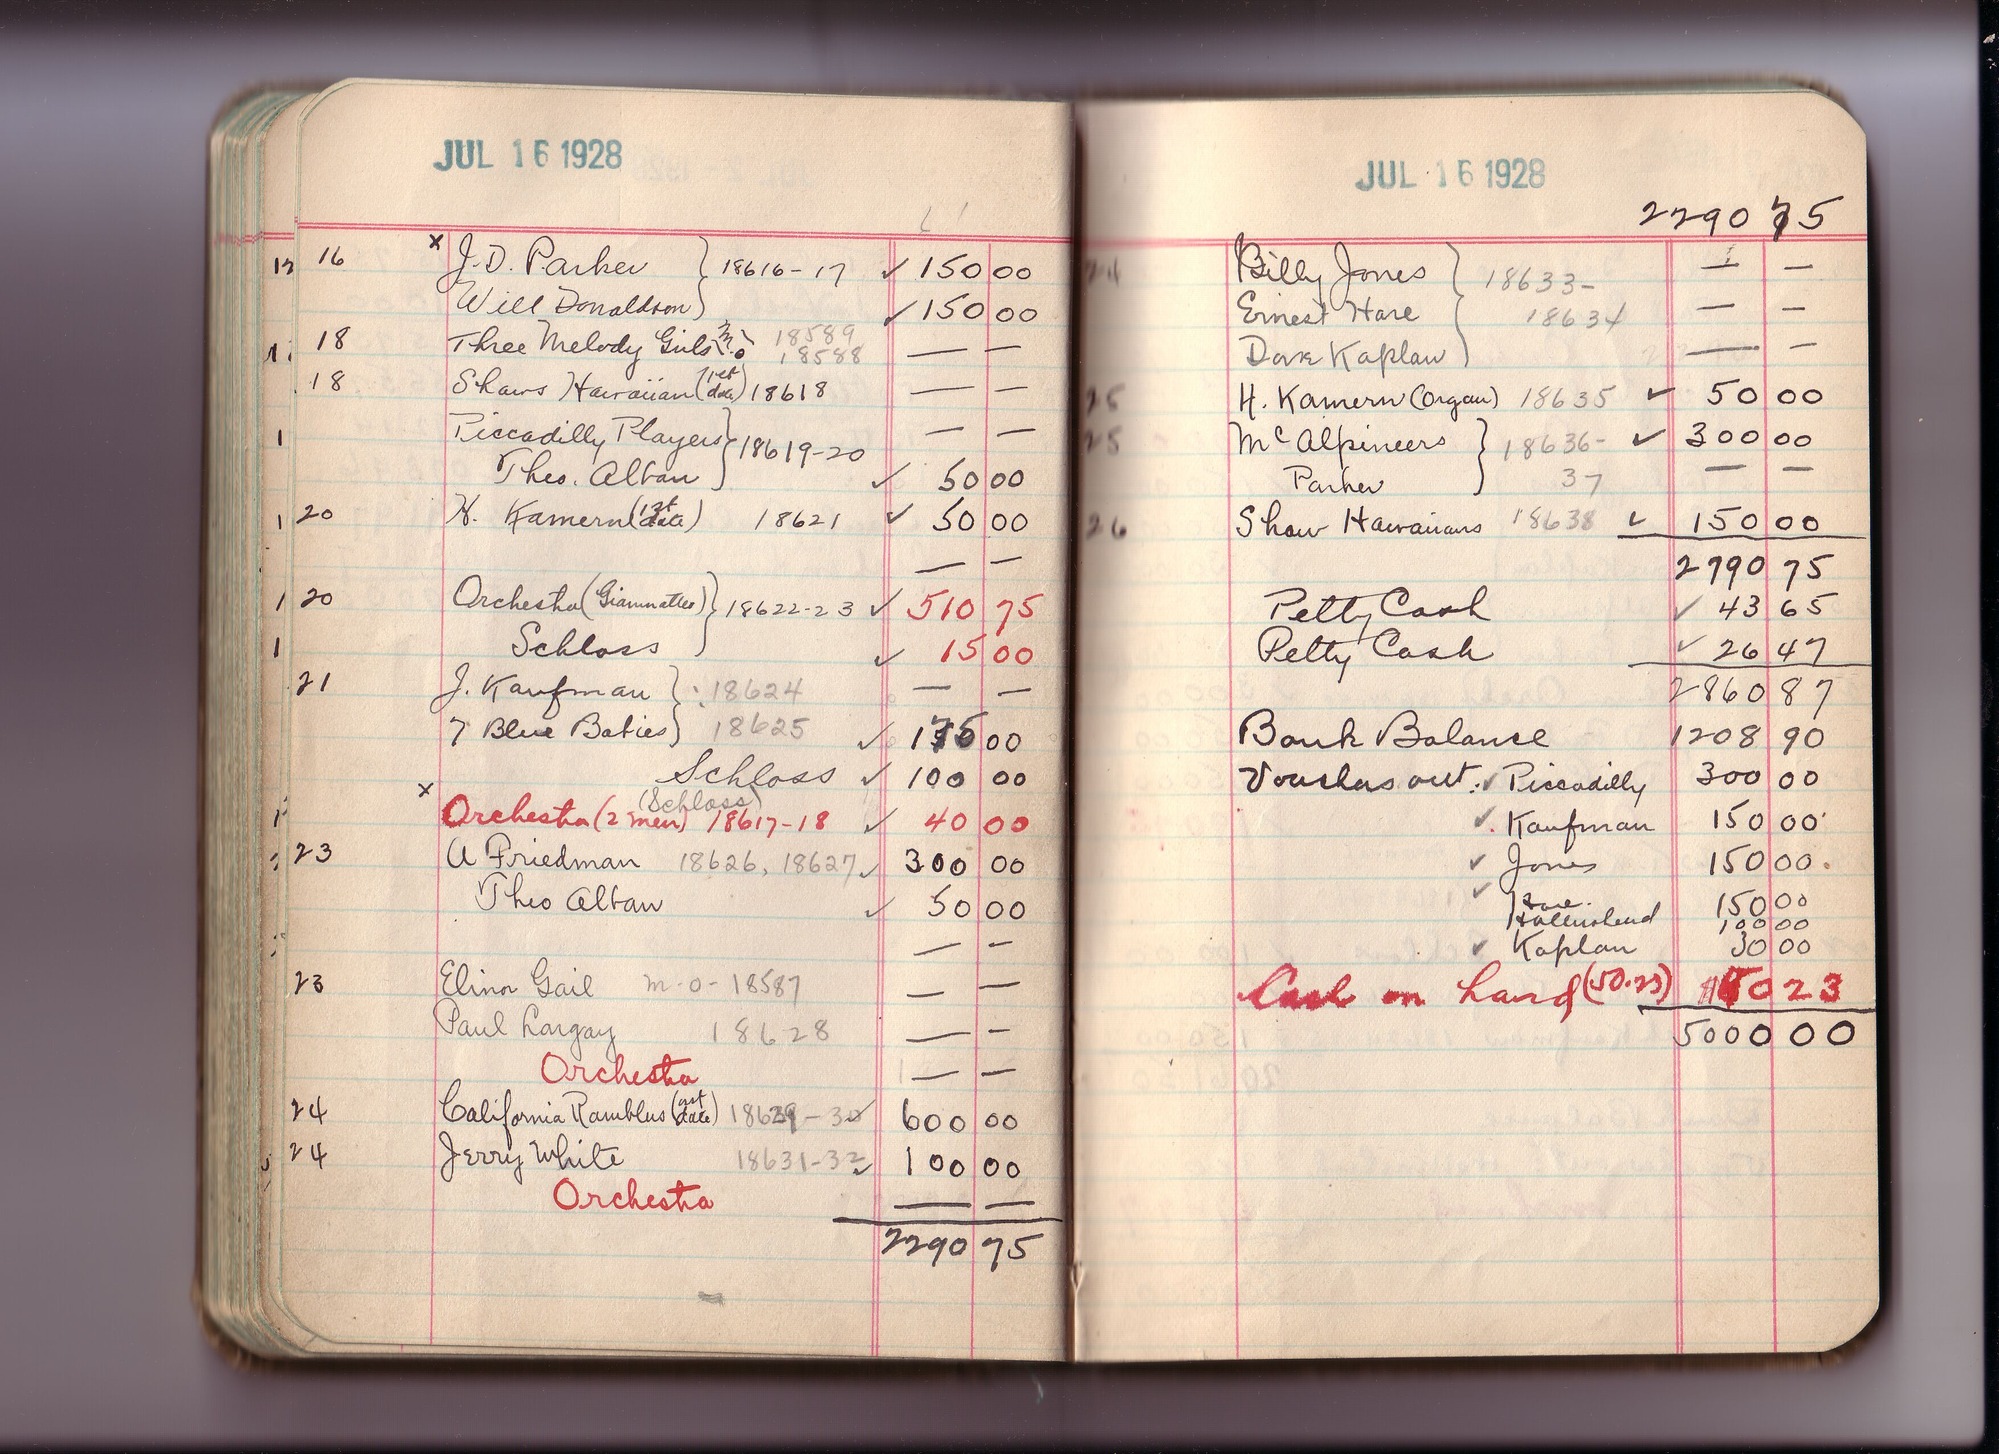 JUL 16 1928
16 x J. D. Parker } 18616-17 ✓ 150 00
Will Donaldson ✓ 150 00
18 Three Melody Girls m.o. 18589
18588 — —
18 Shaws Hawaiian (1st date) 18618 — —
Piccadilly Players } 18619-20 — —
Theo. Alban ✓ 50 00
20 H. Kamern (1st date) 18621 ✓ 50 00
— —
20 Orchestra (Giammatteo) } 18622-23 ✓ 510 75
Schloss ✓ 15 00
21 J. Kaufman } 18624 — —
7 Blue Babies 18625 ✓ 175 00
Schloss ✓ 100 00
(Schloss)
x Orchestra (2 men) 18617-18 ✓ 40 00
23 A Friedman 18626, 18627 ✓ 300 00
Theo Alban ✓ 50 00
— —
23 Elinor Gail m-o- 18587 — —
Paul Largay 18628 — —
Orchestra — —
24 California Ramblers (1st date) 18629-30 ✓ 600 00
24 Jerry White 18631-32 ✓ 100 00
Orchestra — —
2290 75
JUL 16 1928
2290 75
24 Billy Jones } 18633- — —
Ernest Hare 18634 — —
Dave Kaplan — —
25 H. Kamern (Organ) 18635 ✓ 50 00
25 McAlpineers } 18636- ✓ 300 00
Parker 37 — —
26 Shaw Hawaiians 18638 ✓ 150 00
2790 75
Petty Cash ✓ 43 65
Petty Cash ✓ 26 47
2860 87
Bank Balance 1208 90
Vouchers out: ✓ Piccadilly 300 00
✓ Kaufman 150 00
✓ Jones 150 00
✓ Hare 150 00
Hollinshead 100 00
✓ Kaplan 30 00
Cash on hand (50.23) 50 23
5000 00